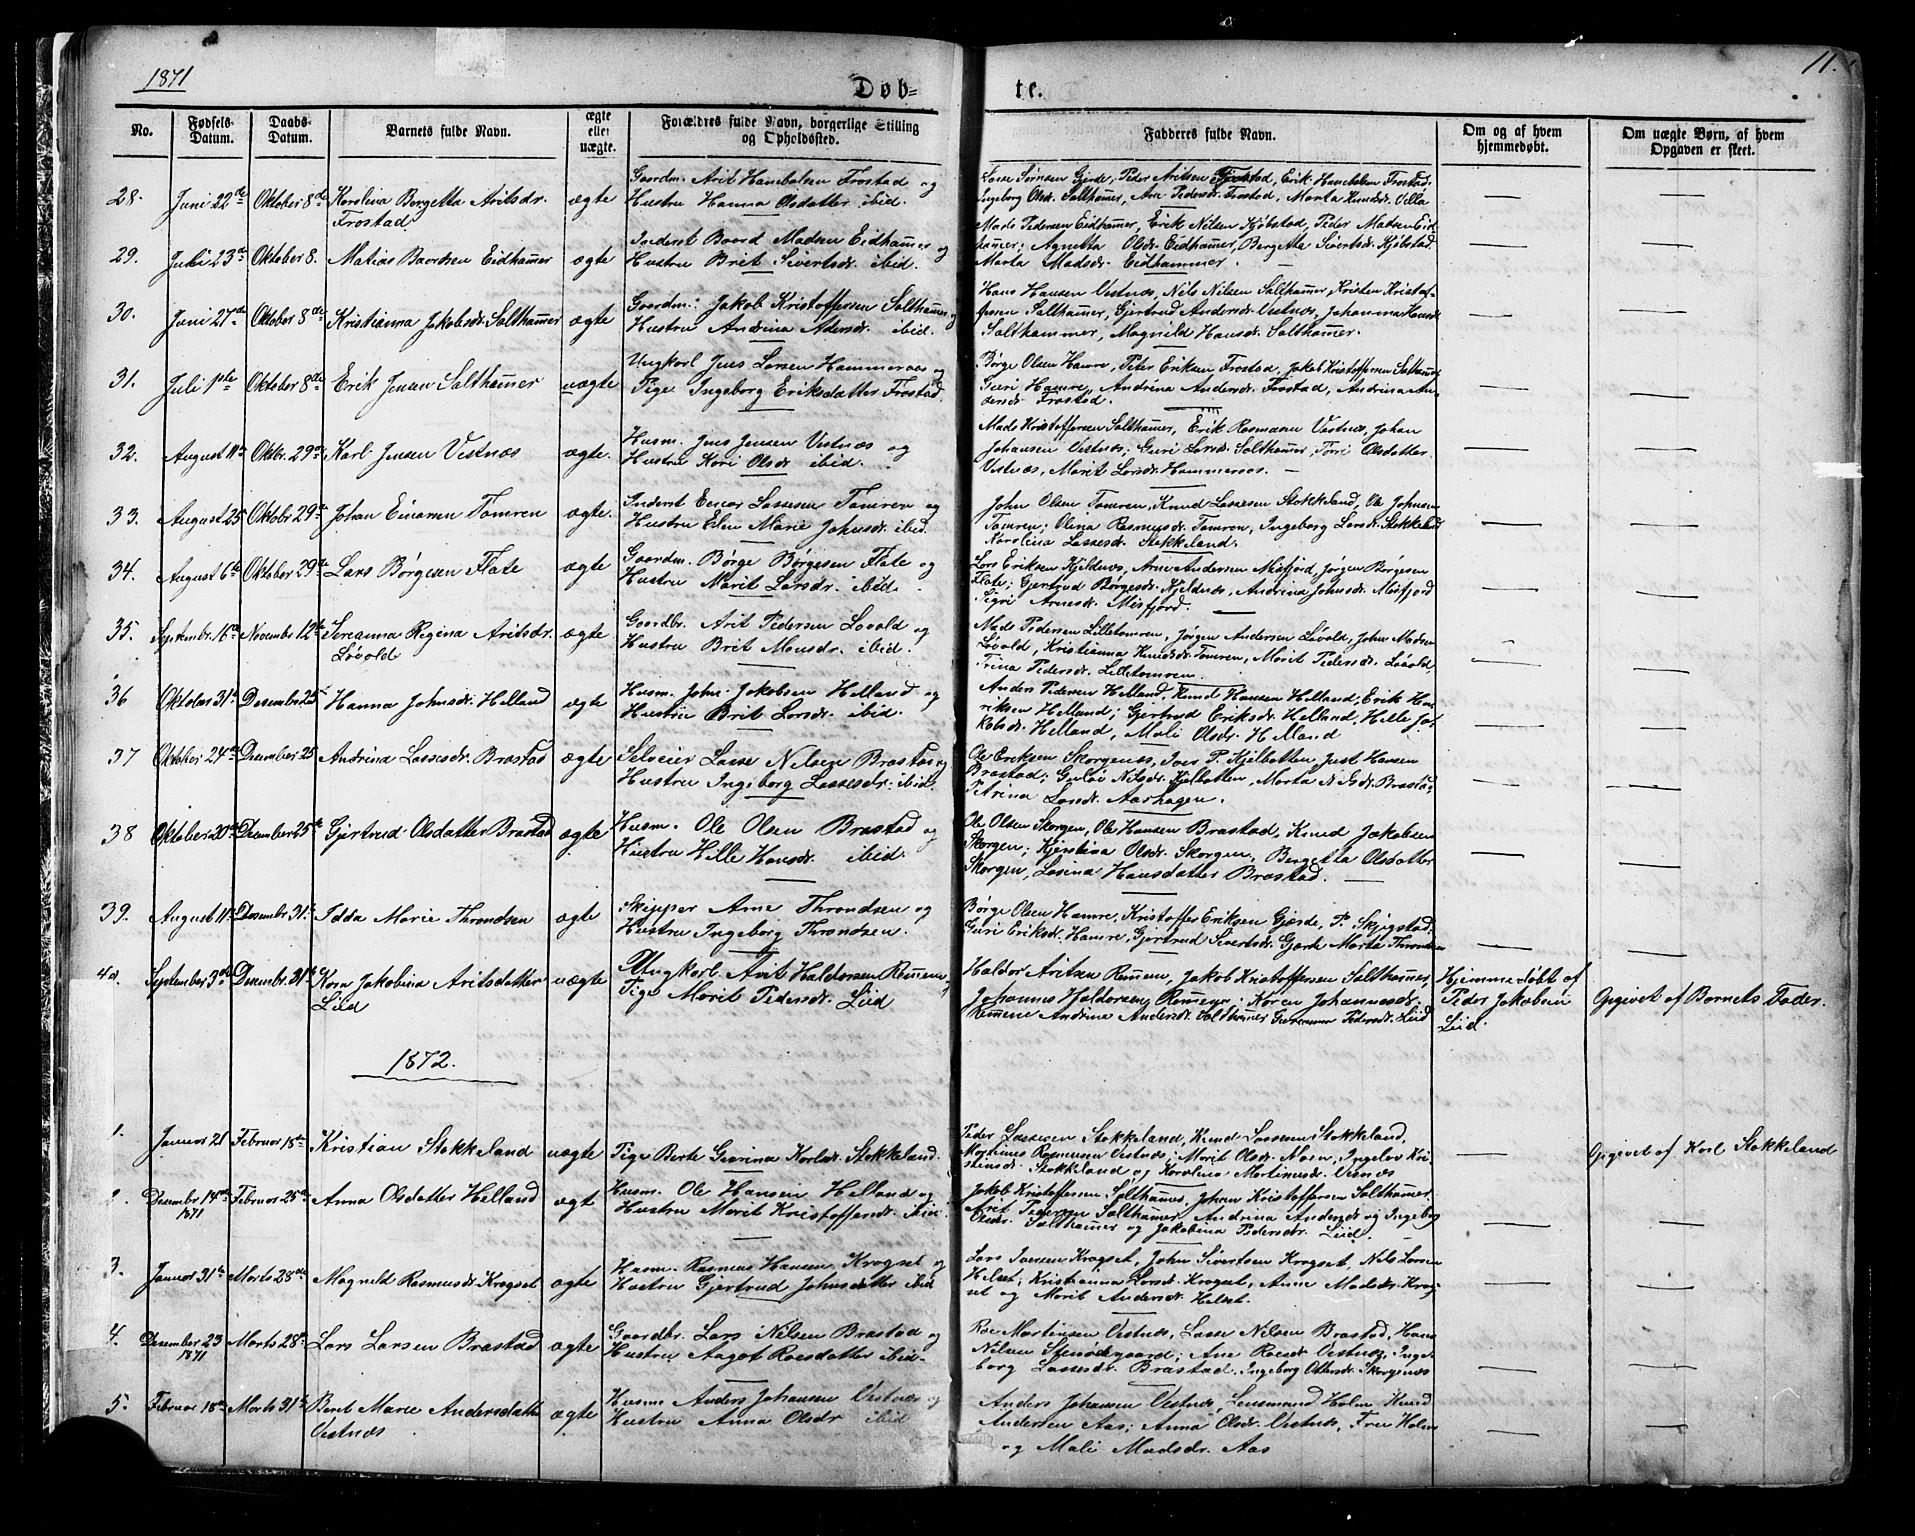 1871
11.
Døb-
te.
No.
Fødsels-
Datum.
Daabs-
Datum.
Barnets fulde Navn.
ægte
eller
uægte.
Forældres fulde Navn, borgerlige Stilling
og Opholdssted.
Fadderes fulde Navn.
Om og af hvem
hjemmedøbt.
Om uægte Børn, af hvem
Opgaven er skeet.
28. Juni 22de Oktober 8de Karolina Bergetta Aritsdr.
Frostad
ægte
Gaardm. Arit Hanebolsen Frostad og
Hustru Hanna Olsdatter ibid.
Lasse Tønsen Gjerde, Peder Aritsen Frostad, Erik Hanebolsen Frostad.
Ingeborg Olsdr. Salthamer, Ane Pedersdr. Frostad, Marta Knudsdr. Villa
29. Juli 23de Oktober 8. Matias Baardsen Eidhamer ægte
Inderst Baard Madsen Eidhamer og
Hustru Brit Sivertsdr. ibid.
Mads Pedersen Eidhamer, Erik Nilsen Kjøbstad, Peder Madsen Eid
hamer; Agnetta Olsdr. Eidhamer, Bergetta Sivertsdr. Kjøbstad
Marta Madsdr. Eidhammer.
30. Juni 27de Oktober 8de Kristianna Jakobsdr. Salthamer ægte
Gaardm: Jakob Kristoffersen Salthamer og
Hustru Andrina Adersdr. ibid.
Hans Hansen Vestnæs, Nils Nilsen Salthamer, Kristen Kristof-
fersen Salthamer, Gjertrud Andersdr. Vestnæs, Johanna Hansdr.
Salthammer, Magnild Hansdr. Salthamer.
31. Juli 1ste Oktober 8de Erik Jensen Salthamer uægte
Ungkarl Jens Larsen Hammeraas og
Pige Ingeborg Eriksdatter Frostad.
Børge Olsen Hamre, Peter Eriksen Frostad, Jakob Kristoffersen Salthamer
Guri Hamre, Andrina Andersdr. Frostad, Andrina An-
dersdr. Frostad.
32. August 11te Oktbr. 29de Karl Jensen Vestnæs ægte.
Husm. Jens Jensen Vestnæs og
Hustru Kari Olsdr. ibid.
Mads Kristoffersen Salthamer, Erik Rasmusen Vestnæs, Johan
Johansen Vestnæs; Guri Larsdr. Salthamer, Olsdatter
Vestnæs, Marit Larsdr. Hammeraas.
33. August 25 Oktobr 29de Johan Einarsen Tomren ægte.
Inderst Einar Lassesen Tomren og
Hustru Elen Marie Johnsdr. ibid.
John Olsen Tomren, Knud Lassesen Stokkeland, Ole Johnsen
Tomren; Olina Rasmusdr. Tomren, Ingeborg Larsdr. Stokkeland
Karolina Lassesdr. Stokkeland.
34. August 6te Oktober 29de Lars Børgesen Flate ægte
Gaardm. Børge Børgesen Flate og
Hustru Marit Larsdr. ibid.
Lars Eriksen Kjeldnæs, Arne Andersen Misfjord, Jørgen Børgesen
Flate; Gjertrud Børgesdr. Kjeldnæs, Andrina Johnsdr. Misfjord
Sigri Arnesdr. Misfjord.
35. Septembr. 16de Novembr 12te Sereanna Regina Aritsdr.
Løvold
ægte
Gaardbr. Arit Pedersen Løvold og
Hustru Brit Monsdr. ibid.
Mads Pedersen Lilletomren, Jørgen Andersen Løvold, John Madsen
Løvold, Kristianna Knudsdr. Tomren, Marit Pedersdr. Løvold,
Trina Pedersdr. Lilletomren.
36 Oktober 31te Desember 25 Hanna Johnsdr. Helland ægte
Husm. John Jakobsen Helland og
Hustru Brit Larsdr. ibid.
Anders Pedersen Helland, Knud Hansen Helland, Erik Hen-
riksen Helland; Gjertrud Eriksdr. Helland, Hille Ja-
kobsdr. Helland, Mali Olsdr. Helland
37 Oktober 24de Desember 25 Andrina Lassesdr. Brastad ægte
Selveier Lasse Nilsen Brastad og
Hustru Ingeborg Lassesdr. ibid.
Ole Eriksen Skorgenæs, Iver P. Kjelbotten, Just Hansen
Brastad; Nilsdr. Kjelbotten, Marta Nilsdr. Brastad,
Petrina Larsdr. Aarhagen.
38 Oktober 20de Desember 25de Gjertrud Olsdatter Brastad ægte.
Husm. Ole Olsen Brastad og
Hustru Hille Hansdr. ibid.
Ole Olsen Skorgen, Ole Hansen Brastad, Knud Jakobsen
Skorgen; Kjerstina Olsdr. Skorgen, Bergetta Olsdatter
Skorgen, Lasina Hansdatter Brastad.
39. August 11te Desembr 31te Idda Marie Throndsen ægte
Skipper Arne Throndsen og
Hustru Ingeborg Throndsen.
Børge Olsen Hamre, Kristoffer Eriksen Gjerde, P. Skjegstad.
Guri Eriksdr. Hamre, Gjertrud Sivertsdr. Gjerde Marta Throndsen
40. September 3de Desembr. 31te Karn Jakobina Aritsdatter
Liid
uægte
Ungkarl. Arit Haldorsen Remmem og
Pige Marit Pedersdr. Liid
Haldor Aritsen Remem, Jakob Kristoffersen Salthamer,
Johannes Haldorsen Remem; Karen Johannesdr.
Remem Andrina Andersdr. Salthamer Pedersdr. Liid
Hjemmedøbt af
Peder Jakobsen
Liid.
Opgivet af Barnets Fader.
1872.
1. Januar 21 Februar 18de Kristian Stokkeland uægte
Pige Berte Giarina Karlsdr. Stokkeland.
Peder Lassesen Stokkeland, Knud Lassesen Stokkeland,
Martinus Rasmusen Vestnæs; Marit Olsdr. Næsen, Ingelev Kri-
stiansdr. Stokkeland og Karolina Martinusdr. Vestnæs
Opgivet af Karl Stokkeland
2. Desembr 14de
1871
Februar 25de Anna Olsdatter Helland ægt
Husm. Ole Hansen Helland og
Hustru Marit Kristoffersdr. ibid.
Jakob Kristoffersen Salthamer, Johan Kristoffersen Salthamer.
Arit Pedersen Salthamer, Andrina Andersdr og Ingeborg
Olsdr. Salthamer og Jakobina Pedersdr. Liid.
3. Januar 31te Marts 28de Magnild Rasmusdr. Krogset ægte
Husm. Rasmus Hansen Krogset og
Hustru Gjertrud Johnsdatter ibid
Lars Iversen Krogset, John Sivertsen Krogset, Nils Larsen
Helset; Kristianna Larsdr. Krogset, Anne Madsdr. Krog-
set og Marit Andersdr. Helset.
4. Desember 23
1871
Marts 28de Lars Larsen Brastad ægte
Gaardbr. Lars Nilsen Brastad og
Hustru Aagot Roesdatter ibid.
Roe Martinsen Vestnæs, Lasse Nilsen Brastad, Hans
Nilsen Stenødegaard; Ane Roesdr Vestnæs, Inge-
borg Lassesdr. Brastad. Ingeborg Olsdr. Skorgenæs
5. Februar 18de Marts 31te Berit Marie Andersdatter
Vestnæs
ægte
Husm Anders Johansen Vestnæs og
Hustru Anna Olsdr ibid
Anders Johansen Vestnæs, Lensmand Holm Knud
Andersen Aas; Anna Olsdr. Vestnæs, Fru Holm
og Mali Madsdr. Aas